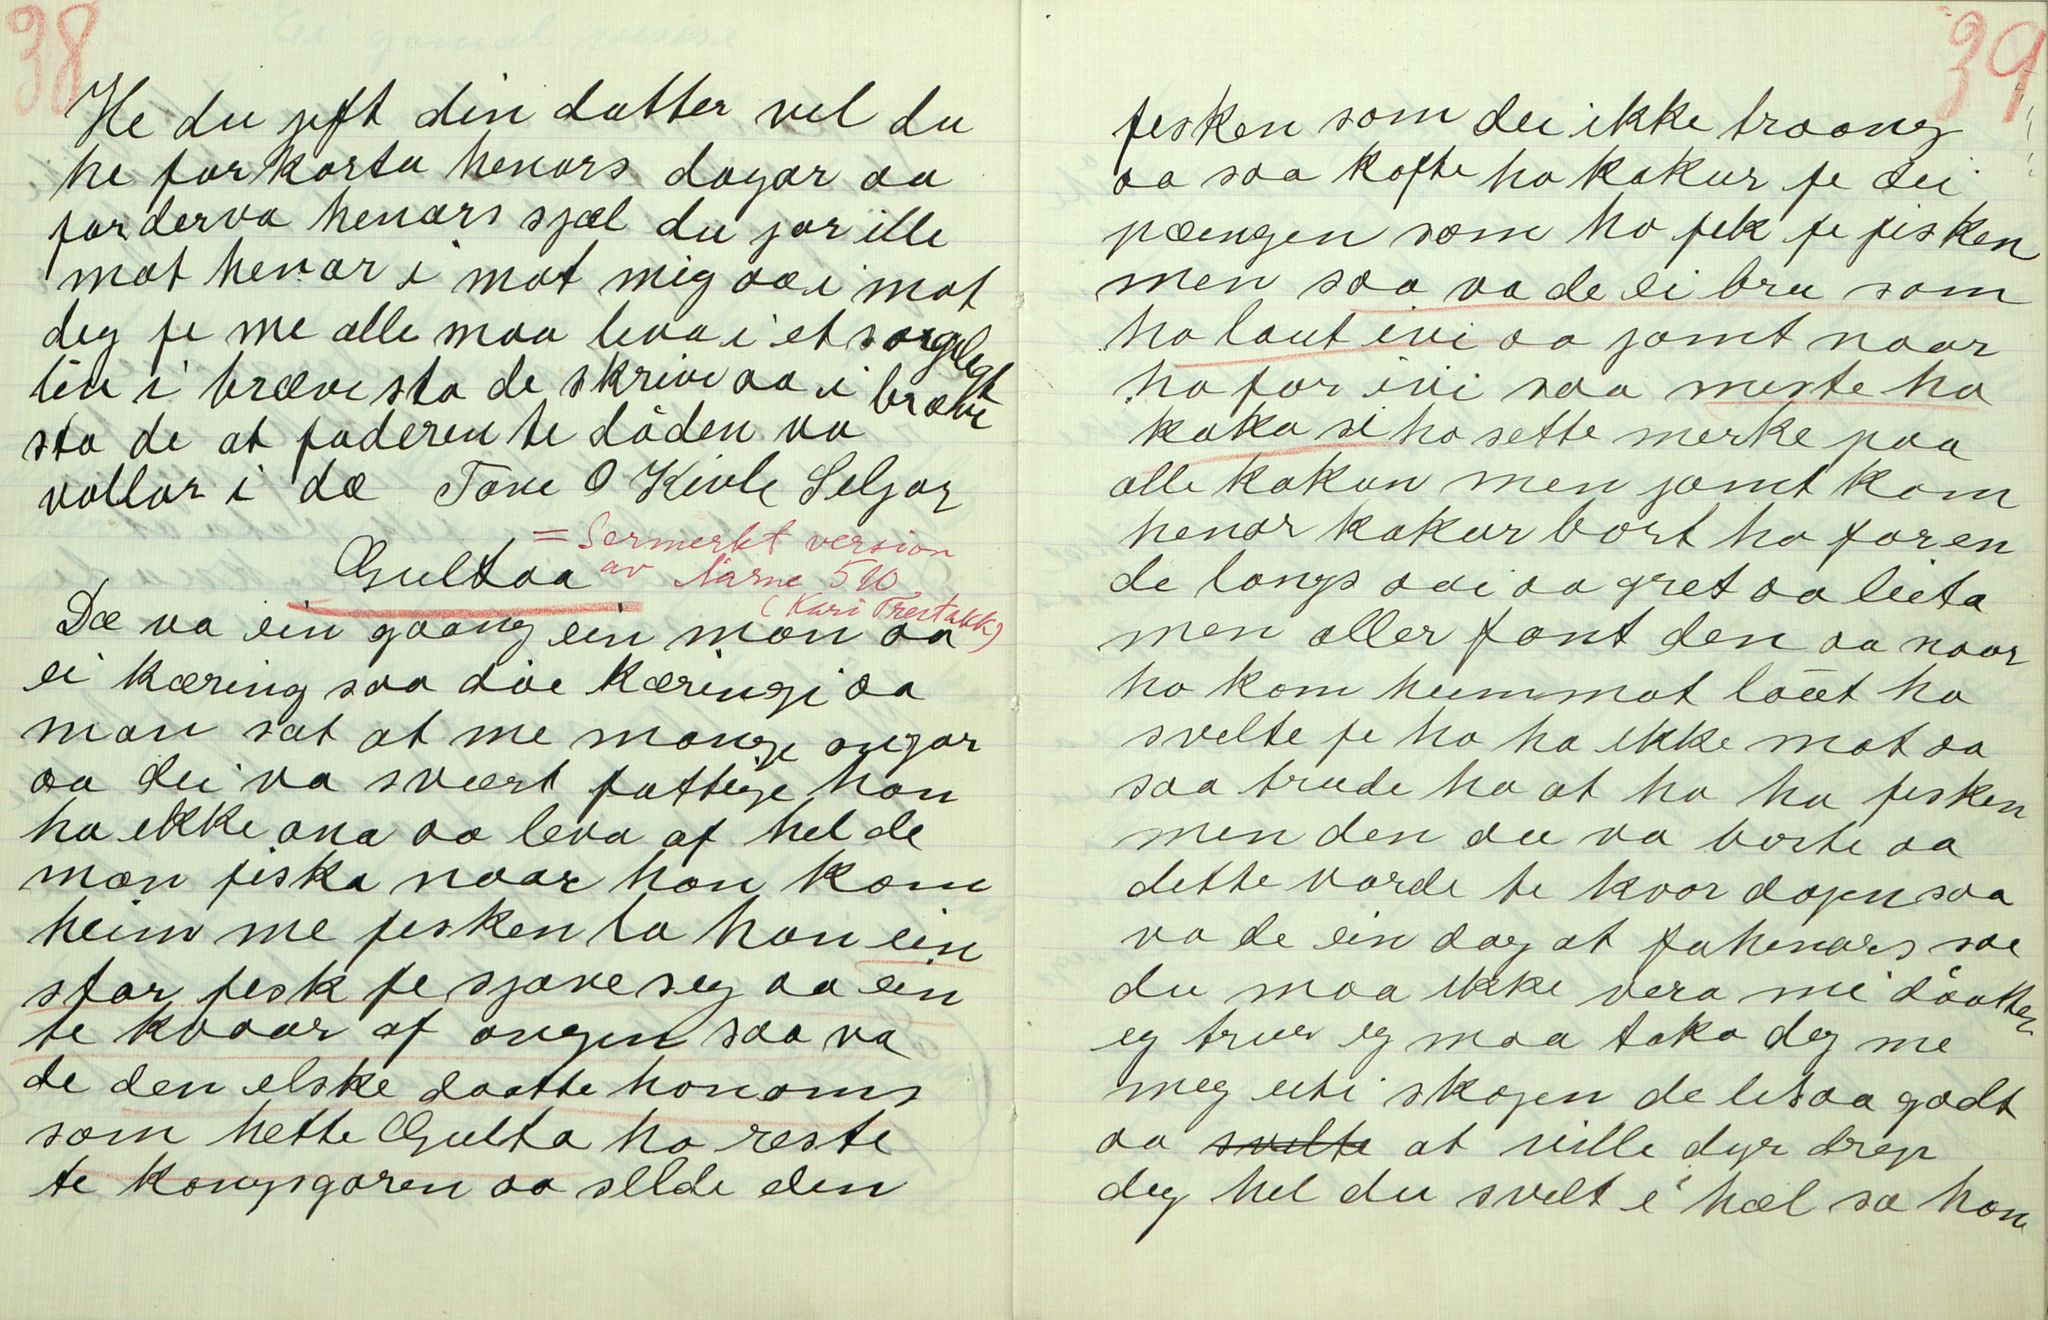 38
He du jift din datter vel du
he forkorta henars dagar aa
forderva henars sjæl du jor ille
mot henar i mot mig aa i mot
deg fe me alle maa leva i et sorgelegt
liv i bræve sto de skrive aa i bræve
sto de at faderen te döden va
vollar i dæ Tove O Kivle Seljor
= Sermerkt version
Gultaa av Aarne 510
(Kari Trestakk)
Dæ va ein gaang ein mon aa
ei kæring saa döe kæringi aa
mon sat at me mange ongar
aa dei va svært fattige han
ha ikke ana aa leva af hel de
mon fiska naar han kom
heim me fisken la han ein
stor fesk fe sjøve seg aa ein
te kvaar af ongen saa va
de den elske daatte honoms
som hette Gulta ho reste
te kongsgoren aa sellde den
39
fesken som dei ikke traang
aa saa kofte ho kakur fe dei
pængen som ho fek fe fisken
men saa va de ei bru som
ho laut ivi aa jamt naar
ho for ivi saa miste ho
kaka si ho sette merke paa
alle kakun men jamt kom
henar kakur bort ho for en
de langs aai aa gret aa leita
men aller fant den aa naar
ho kom heimmot löut ho
svelte fe ho ha ikke mat aa
saa trude ho at ho ha fisken
men den au va borte aa
dette varde te kvor dagen saa
va de ein dag at fa henars sae
du maa ikke vera mi daatter
eg truer eg maa taka deg me
meg uti skogen de lisaa godt
aa svelte at ville dyr drep
deg hel du svelt i hæl sa han